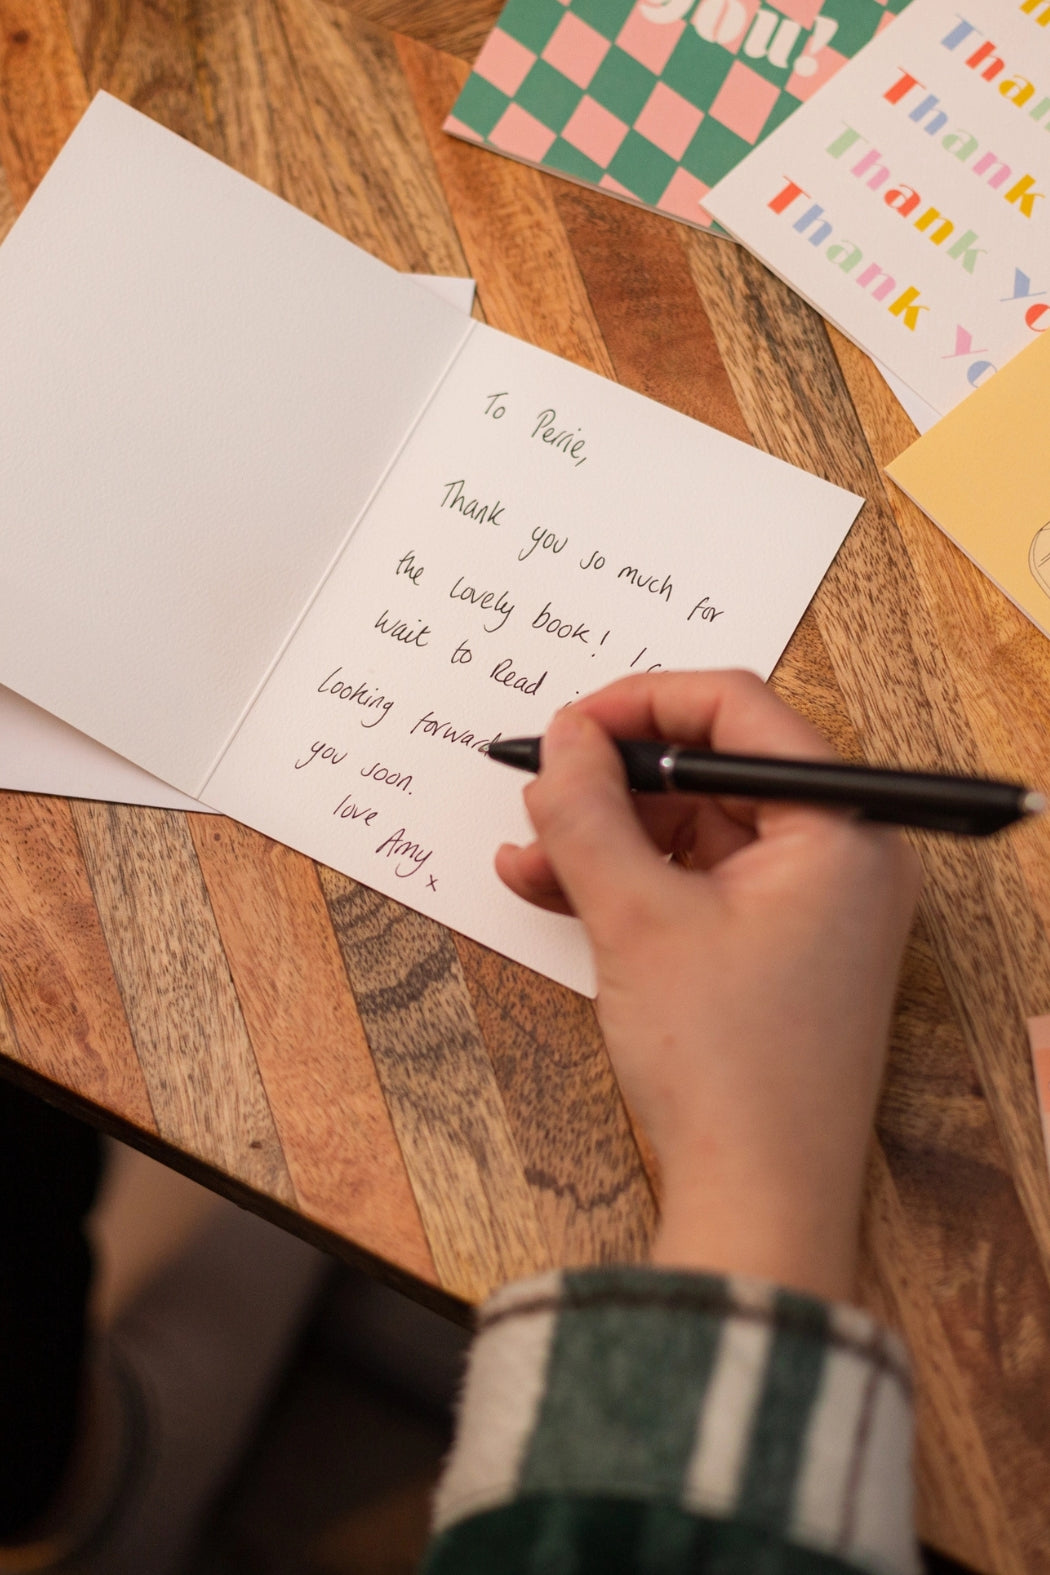 you!
Thank
Thank
Thank
Thank
To Perrie,
Thank you so much for
the lovely book! I
wait to Read
looking forward
you soon.
love Amy x